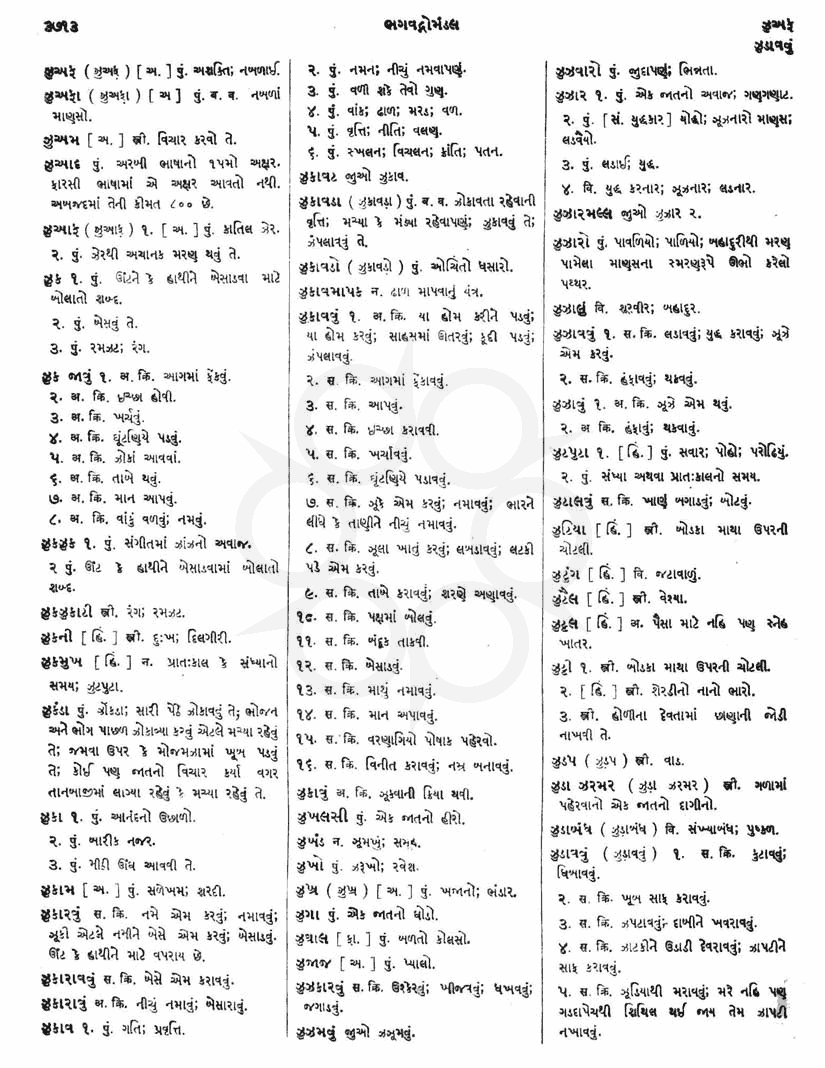 ૩૭૧૩
ભગવદ્ગોમંડલ
ઝુઅફ
ઝુડાવવું
ઝુઅફ ( ઝુઅફ઼ ) [ અ. ] પું. અશક્તિ; નબળાઈ.
ઝુઅફા ( ઝુઅફ઼ા ) [ અ ] પું. બ. વ. નબળાં
માણસો.
ઝુઅમ [ અ. ] સ્ત્રી. વિચાર કરવો તે.
ઝુઆદ પું. અરબી ભાષાનો ૧૫મો અક્ષર.
ફારસી ભાષામાં એ અક્ષર આવતો નથી.
અબજદમાં તેની કીંમત ૮૦૦ છે.
ઝુઆફ ( ઝુઆફ઼ ) ૧. [ અ. ] પું. કાતિલ ઝેર.
૨. પું. ઝેરથી અચાનક મરણ થવું તે.
ઝુક ૧. પું. ઊંટને કે હાથીને બેસાડવા માટે
બોલાતો શબ્દ.
૨. પું. બેસવું તે.
૩. પું. રમઝટ; રંગ.
ઝુક જાવું ૧. અ. ક્રિ. આગમાં ફેંકવું.
૨. અ. ક્રિ. ઇચ્છા હોવી.
૩. અ. ક્રિ. ખર્ચવું.
૪. અ. ક્રિ. ઘૂંટણિયે પડવું.
૫. અ. ક્રિ. ઝોકાં આવવાં.
૬. અ. ક્રિ. તાબે થવું.
૭. અ. ક્રિ. માન આપવું.
૮. અ. ક્રિ. વાંકું વળવું; નમવું.
ઝુકઝુક ૧. પું. સંગીતમાં ઝાંઝનો અવાજ.
૨ પું. ઊંટ કે હાથીને બેસાડવામાં બોલાતો
શબ્દ.
ઝુકઝુકાટી સ્ત્રી. રંગ; રમઝટ.
ઝુકની [ હિં. ] સ્ત્રી. દુ:ખ; દિલગીરી.
ઝુકમુખ [ હિં. ] ન. પ્રાત:કાલ કે સંધ્યાનો
સમય; ઝુટપુટા.
ઝુકંડા પું. ઝોંકડા; સારી પેઠે ઝોકાવવું તે; ભોજન
અને ભોગ પાછળ ઝોકાવ્યા કરવું એટલે મચ્યા રહેવું
તે; જમવા ઉપર કે મોજમઝામાં ખૂબ પડવું
તે; કોઈ પણ જાતનો વિચાર કર્યા વગર
તાનબાજીમાં લાગ્યા રહેવું કે મચ્યા રહેવું તે.
ઝુકા ૧. પું. આનંદનો ઉછાળો.
૨. પું. બારીક નજર.
૩. પું. મીઠી ઊંઘ આવવી તે.
ઝુકામ [ અ. ] પું. સળેખમ; શરદી.
ઝુકારવું સ. ક્રિ. નમે એમ કરવું; નમાવવું;
ઝૂકી એટલે નમીને બેસે એમ કરવું; બેસાડવું.
ઊંટ કે હાથીને માટે વપરાય છે.
ઝુકારાવવું સ. ક્રિ. બેસે એમ કરાવવું.
ઝુકારાવું અ. ક્રિ. નીચું નમાવું; બેસારાવું.
ઝુકાવ ૧. પું. ગતિ; પ્રવૃત્તિ.
૨. પું. નમન; નીચું નમવાપણું.
૩. પું. વળી શકે તેવો ગુણ.
૪. પું. વાંક; ઢાળ; મરડ; વળ.
૫. પું. વૃત્તિ; નીતિ; વલણ.
૬. પું. સ્ખલન; વિચલન; ક્રાંતિ; પતન.
ઝુકાવટ જુઓ ઝુકાવ.
ઝુકાવડા ( ઝુકાવડ઼ા ) પું. બ. વ. ઝોકાવતા રહેવાની
વૃત્તિ; મચ્યા કે મંડ્યા રહેવાપણું; ઝુકાવવું તે;
ઝંપલાવવું તે.
ઝુકાવડો ( ઝુકાવડ઼ો ) પું. ઓચિંતો ધસારો.
ઝુકાવમાપક ન. ઢાળ માપવાનું યંત્ર.
ઝુકાવવું ૧. અ. ક્રિ. યા હોમ કરીને પડવું;
યા હોમ કરવું; સાહસમાં ઊતરવું; કૂદી પડવું;
ઝંપલાવવું.
૨. સ. ક્રિ. આગમાં ફેંકાવવું.
૩. સ. ક્રિ. આપવું.
૪. સ. ક્રિ. ઇચ્છા કરાવવી.
૫. સ. ક્રિ. ખર્ચાવવું.
૬. સ. ક્રિ. ઘૂંટણિયે પડાવવું.
૭. સ. ક્રિ. ઝૂકે એમ કરવું; નમાવવું; ભારને
લીધે કે તાણીને નીચું નમાવવું.
૮. સ. ક્રિ. ઝૂલા ખાતું કરવું; લબડાવવું; લટકી
પડે એમ કરવું.
૯. સ. ક્રિ. તાબે કરાવવું; શરણે અણાવવું.
૧૦. સ. ક્રિ. પક્ષમાં બોલવું.
૧૧. સ. ક્રિ. બંદૂક તાકવી.
૧૨. સ. ક્રિ. બેસાડવું.
૧૩. સ. ક્રિ. માથું નમાવવું.
૧૪. સ. ક્રિ. માન અપાવવું.
૧૫. સ. ક્રિ. વરણાગિયો પોષાક પહેરવો.
૧૬. સ. ક્રિ. વિનીત કરાવવું; નમ્ર બનાવવું.
ઝુકાવું અ. ક્રિ. ઝૂકવાની ક્રિયા થવી.
ઝુખલસી પું. એક જાતનો હીરો.
ઝુખંડ ન. ઝૂમખું; સમૂહ.
ઝુખો પું. ઝરૂખો; રવેશ.
ઝુખ્ર ( ઝુખ઼્ર ) [ અ. ] પું. ખજાનો; ભંડાર.
ઝુગા પું. એક જાતનો ઘોડો.
ઝુઘાલ [ ફા. ] પું. બળતો કોલસો.
ઝુજાજ [ અ. ] પું. પ્યાલો.
ઝુઝકારવું સ. ક્રિ. ઉશ્કેરવું; ખીજવવું; ધખવવું;
જગાડવું.
ઝુઝમવું જુઓ ઝઝૂમવું.
ઝુઝવારો પું. જુદાપણું; ભિન્નતા.
ઝુઝાર ૧. પું. એક જાતનો અવાજ; ગણગણાટ.
૨. પું. [ સં. યુદ્ધકાર ] યોદ્ધો; ઝૂઝનારો માણસ;
લડવૈયો.
૩. પું. લડાઈ; યુદ્ધ.
૪. વિ. યુદ્ધ કરનાર; ઝૂઝનાર; લડનાર.
ઝુઝારમલ્લ જુઓ ઝુઝાર ૨.
ઝુઝારો પું. પાવળિયો; પાળિયો; બહાદુરીથી મરણ
પામેલા માણસના સ્મરણરૂપે ઊભો કરેલો
પથ્થર.
ઝુઝાળું વિ. શૂરવીર; બહાદુર.
ઝુઝાવવું ૧. સ. ક્રિ. લડાવવું; યુદ્ધ કરાવવું; ઝૂઝે
એમ કરવું.
૨. સ. ક્રિ. હંફાવવું; થકવવું.
ઝુઝાવું ૧. અ. ક્રિ. ઝૂઝે એમ થવું.
૨. અ ક્રિ. હંફાવું; થકવાવું.
ઝુટપુટા ૧. [ હિં. ] પું. સવાર; પોહો; પરોઢિયું.
૨. પું. સંધ્યા અથવા પ્રાત:કાલનો સમય.
ઝુટાલવું સ. ક્રિ. ખાણું બગાડવું; બોટવું.
ઝુટિયા [ હિં. ] સ્ત્રી. બોડકા માથા ઉપરની
ચોટલી.
ઝુટુંગ [ હિં. ] વિ. જટાવાળું.
ઝુટૈલ [ હિં. ] સ્ત્રી. વેશ્યા.
ઝુટ્ટલ [ હિં. ] અ. પૈસા માટે નહિ પણ સ્નેહ
ખાતર.
ઝુટ્ટી ૧. સ્ત્રી. બોડકા માથા ઉપરની ચોટલી.
૨. [ હિં. ] સ્ત્રી. શેરડીનો નાનો ભારો.
૩. સ્ત્રી. હોળીના દેવતામાં છાણાની જોડી
નાખવી તે.
ઝુડપ ( ઝુડ઼પ ) સ્ત્રી. વાડ.
ઝુડા ઝરમર ( ઝુડ઼ા ઝરમર ) સ્ત્રી. ગળામાં
પહેરવાનો એક જાતનો દાગીનો.
ઝુડાબંધ ( ઝુડ઼ાબંધ ) વિ. સંખ્યાબંધ; પુષ્કળ.
ઝુડાવવું ( ઝુડ઼ાવવું ) ૧. સ. ક્રિ. કુટાવવું;
ધિબાવવું.
૨. સ. ક્રિ. ખૂબ સાફ કરાવવું.
૩. સ. ક્રિ. ઝપટાવવું; દાબીને ખવરાવવું.
૪. સ. ક્રિ. ઝાટકીને ઉડાડી દેવરાવવું; ઝાપટીને
સાફ કરાવવું.
૫. સ. ક્રિ. ઝૂડિયાથી મરાવવું; મરે નહિ પણ
ગડદાપેચથી શિથિલ થઈ જાય તેમ ઝાપટી
નખાવવું.